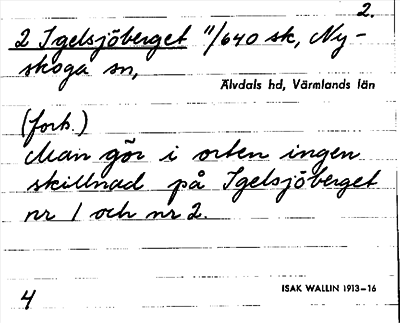 2.
2 Igelsjöberget 11/640 sk, Ny-
skoga sn,
Älvdals hd, Värmlands län
(forts.)
Man gör i orten ingen
skillnad på Igelsjöberget
nr 1 och nr 2.
ISAK WALLIN 1913–16
4